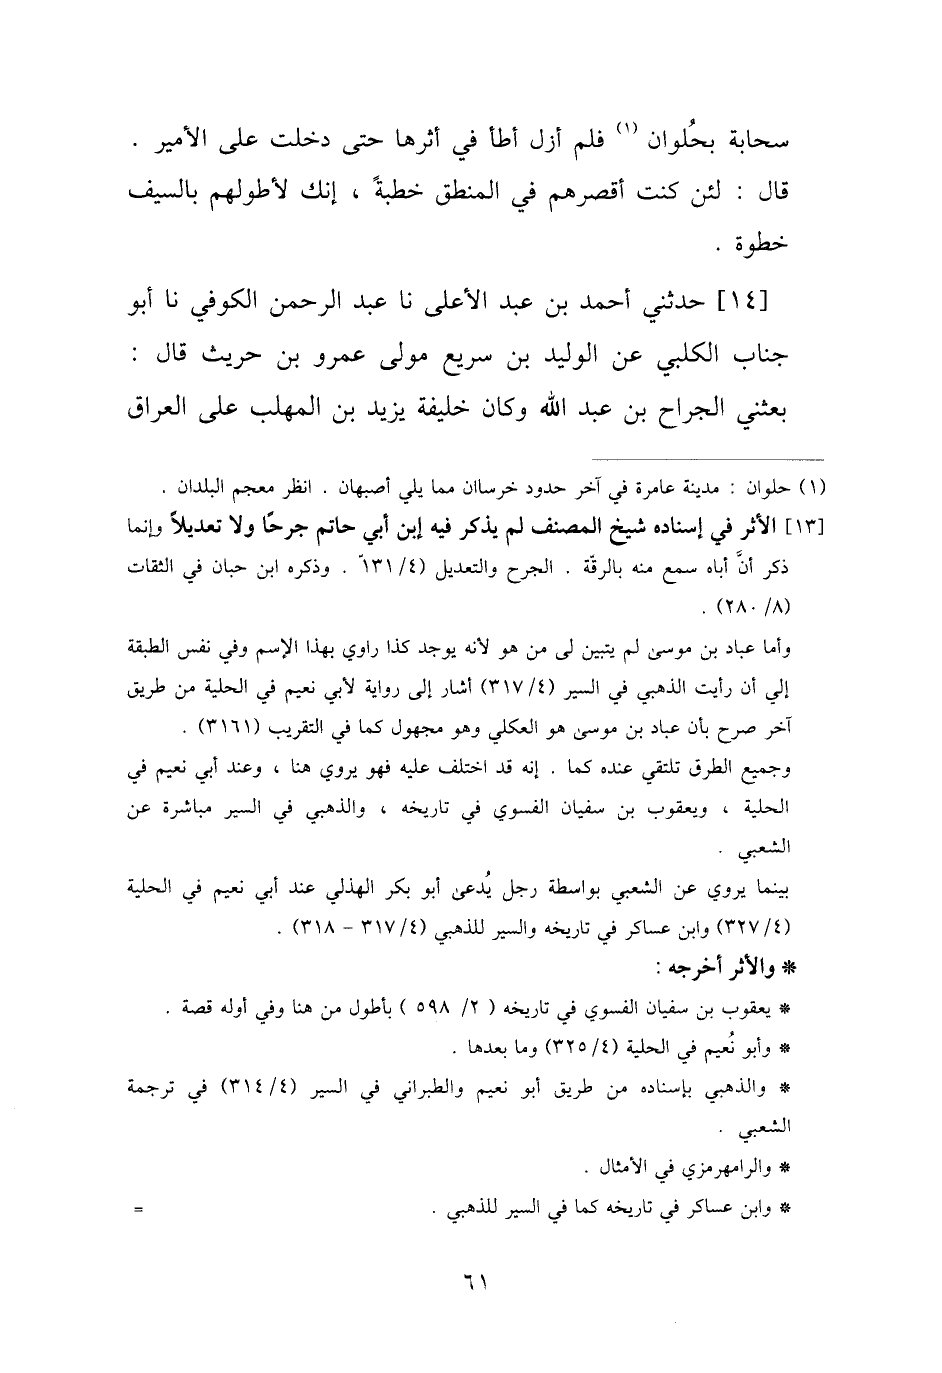 سحابة بحُلوان (١) فلم أزل أطأ في أثرها حتى دخلت على الأمير .
قال : لئن كنت أقصرهم في المنطق خطبةً ، إنك لأطولهم بالسيف
خطوة .
[١٤] حدثني أحمد بن عبد الأعلى نا عبد الرحمن الكوفي نا أبو
جناب الكلبي عن الوليد بن سريع مولى عمرو بن حريث قال :
بعثني الجراح بن عبد الله وكان خليفة يزيد بن المهلب على العراق
(١) حلوان : مدينة عامرة في آخر حدود خرسان مما يلي أصبهان . انظر معجم البلدان .
[١٣] الأثر في إسناده شيخ المصنف لم يذكر فيه إبن أبي حاتم جرحًا ولا تعديلاً وإنما
ذكر أنَّ أباه سمع منه بالرقّة . الجرح والتعديل (٤/ ١٣١ . وذكره ابن حبان في الثقات
(٨/ ٢٨٠) .
وأما عباد بن موسىٰ لم يتبين لى من هو لأنه يوجد كذا راوي بهذا الإسم وفي نفس الطبقة
إلي أن رأيت الذهبي في السير (٤/ ٣١٧) أشار إلى رواية لأبي نعيم في الحلية من طريق
آخر صرح بأن عباد بن موسىٰ هو العكلي وهو مجهول كما في التقريب (٣١٦١) .
وجميع الطرق تلتقي عنده كما . إنه قد اختلف عليه فهو يروي هنا ، وعند أبي نعيم في
الحلية ، ويعقوب بن سفيان الفسوي في تاريخه ، والذهبي في السير مباشرة عن
الشعبي .
بينما يروي عن الشعبي بواسطة رجل يُدعىٰ أبو بكر الهذلي عند أبي نعيم في الحلية
(٤/ ٣٢٧) وابن عساكر في تاريخه والسير للذهبي (٤/ ٣١٧ - ٣١٨) .
* والأثر أخرجه :
* يعقوب بن سفيان الفسوي في تاريخه ( ٢/ ٥٩٨ ) بأطول من هنا وفي أوله قصة .
* وأبو نُعيم في الحلية (٤/ ٣٢٥) وما بعدها .
* والذهبي بإسناده من طريق أبو نعيم والطبراني في السير (٤/ ٣١٤) في ترجمة
الشعبي .
* والرامهرمزي في الأمثال .
* وابن عساكر في تاريخه كما في السير للذهبي . =
٦١